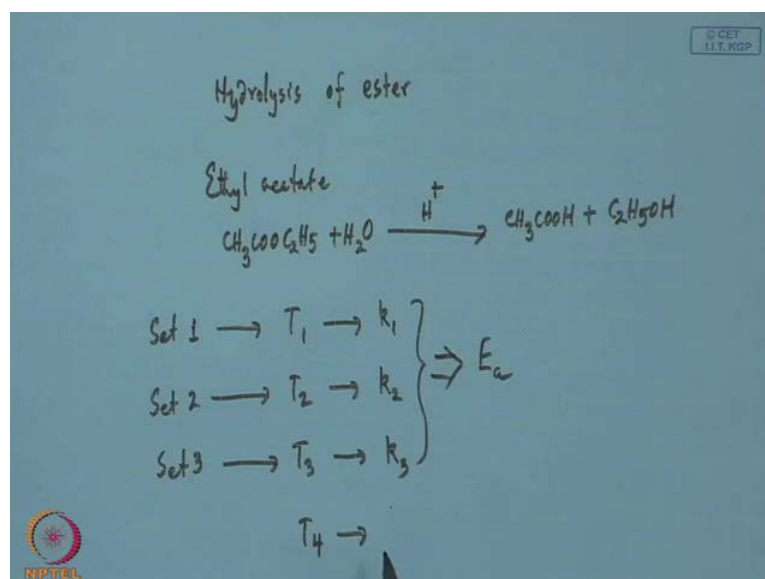 © CET
I.I.T. KGP
Hydrolysis of ester
Ethyl acetate
CH₃COOC₂H₅ + H₂O —H⁺→ CH₃COOH + C₂H₅OH
Set 1 → T₁ → k₁
Set 2 → T₂ → k₂ } ⇒ Eₐ
Set 3 → T₃ → k₃
T₄ →
NPTEL